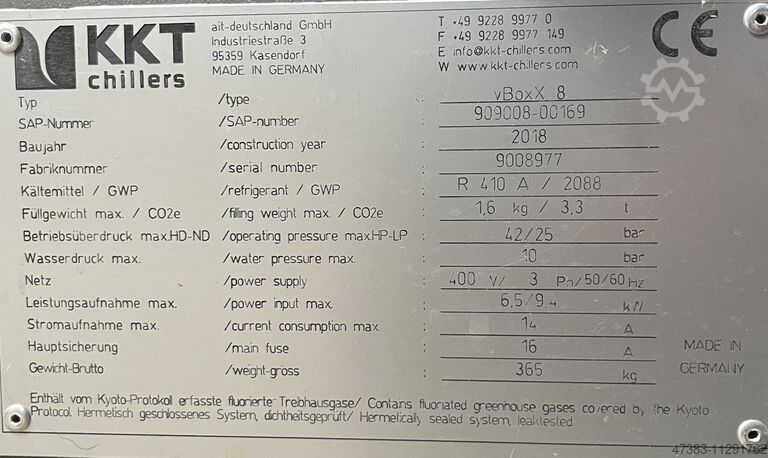 KKT
chillers
ait-deutschland GmbH
Industriestraße 3
95359 Kasendorf
MADE IN GERMANY
T +49 9228 9977 0
F +49 9228 9977 149
E info@kkt-chillers.com
W www.kkt-chillers.com
CE
Typ /type : vBoxX 8
SAP-Nummer /SAP-number : 909008-00169
Baujahr /construction year : 2018
Fabriknummer /serial number : 9008977
Kältemittel / GWP /refrigerant / GWP : R 410 A / 2088
Füllgewicht max. / CO2e /filling weight max. / CO2e : 1,6 kg / 3,3 t
Betriebsüberdruck max.HD-ND /operating pressure max.HP-LP : 42/25 bar
Wasserdruck max. /water pressure max. : 10 bar
Netz /power supply : 400 V/ 3 Ph/50/60 Hz
Leistungsaufnahme max. /power input max. : 6.5/9.4 kW
Stromaufnahme max. /current consumption max. : 14 A
Hauptsicherung /main fuse : 16 A
Gewicht-Brutto /weight-gross : 365 kg
MADE IN
GERMANY
Enthält vom Kyoto-Protokoll erfasste fluorierte Treibhausgase/ Contans fluoriated greenhouse gases covered by the Kyoto
Protocol Hermetisch geschlossenes System, dichtheitsgeprüft/ Hermetically sealed system, leaktested
47383-11291762